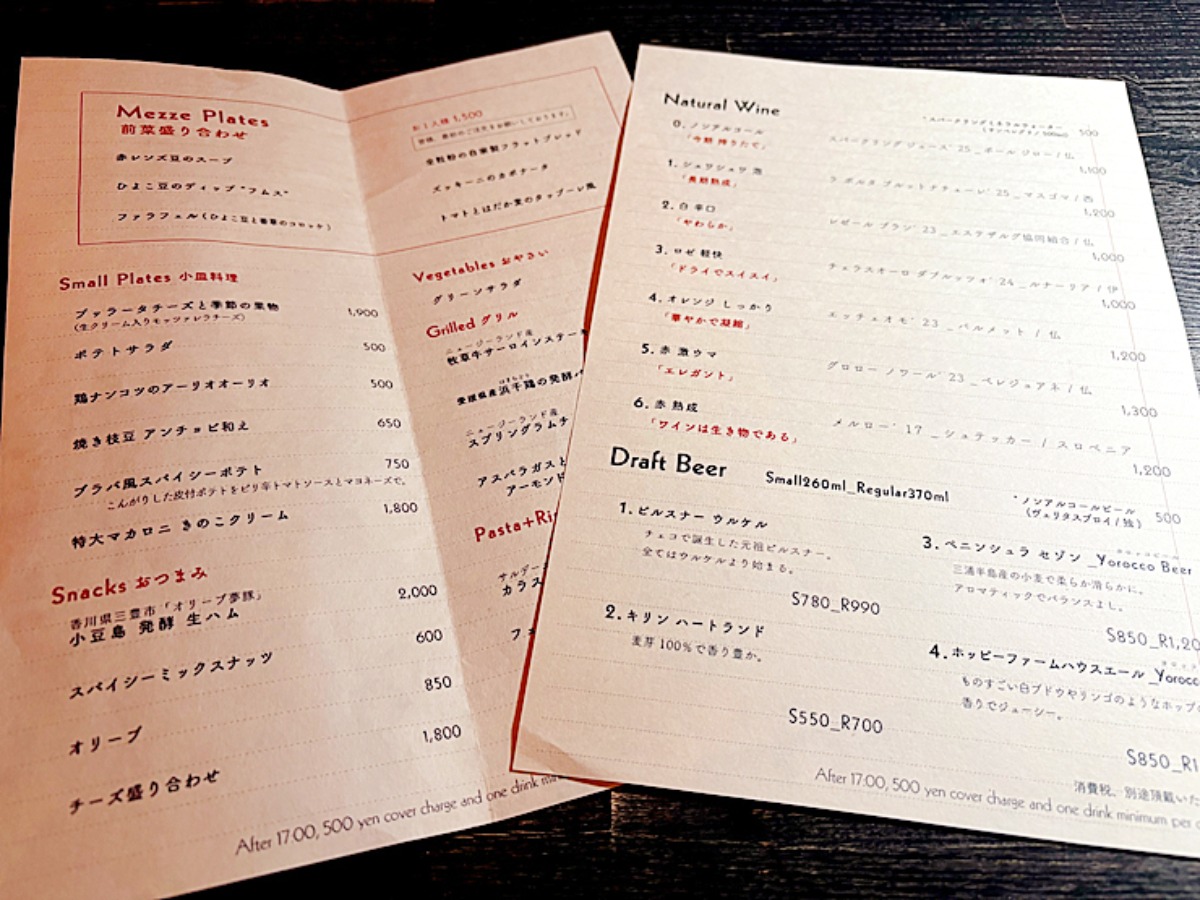 Mezze Plates
前菜盛り合わせ
赤レンズ豆のスープ
ひよこ豆のディップ "フムス"
ファラフェル(ひよこ豆と香草のコロッケ)
お1人様 1,500
皆様、最初のご注文をお願いしております。
全粒粉の自家製フラットブレッド
ズッキーニのカポナータ
トマトとはだか麦のタッブーレ風
Small Plates 小皿料理
ブッラータチーズと季節の果物
(生クリーム入りモッツァレラチーズ)
1,900
ポテトサラダ
500
鶏ナンコツのアーリオオーリオ
500
焼き枝豆 アンチョビ和え
650
ブラバ風スパイシーポテト
750
こんがりした皮付ポテトをピリ辛トマトソースとマヨネーズで。
特大マカロニ きのこクリーム
1,800
Snacks おつまみ
香川県三豊市「オリーブ夢豚」
小豆島 発酵 生ハム
2,000
スパイシーミックスナッツ
600
オリーブ
850
チーズ盛り合わせ
1,800
Vegetables おやさい
グリーンサラダ
Grilled グリル
ニュージーランド産
牧草牛サーロインステーキ
愛媛県産浜千鶏の発酵
ニュージーランド産
スプリングラムチ
アスパラガスと
アーモンド
Pasta+Ri
サルデー
カラス
フォ
After 17:00, 500 yen cover charge and one drink min
Natural Wine
*スパークリングミネラルウォーター
(サンペレグリノ 500ml)
500
0. ノンアルコール
「今朝 搾りたて」
スパークリング ジュース' 25 _ ポール ジロー / 仏
1,100
1. シュワシュワ 泡
「長期熟成」
ラ ポルタ ブルットナチューレ' 25 _ マスゴマ / 西
1,200
2. 白 辛口
「やわらか」
レゼール ブラン' 23 _ エステザルグ協同組合 / 仏
1,000
3. ロゼ 軽快
「ドライでスイスイ」
チェラスオーロ ダブルッツォ' 24 _ ルナーリア / 伊
1,000
4. オレンジ しっかり
「華やかで凝縮」
エッチェオモ' 23 _ パルメット / 仏
1,200
5. 赤 激ウマ
「エレガント」
グロロー ノワール' 23 _ ペレジュアネ / 仏
1,300
6. 赤 熟成
「ワインは生き物である」
メルロー' 17 _ シュテッカー / スロベニア
1,200
Draft Beer
Small260ml_Regular370ml
*ノンアルコールビール
(ヴェリタスブロイ / 独)
500
1. ピルスナー ウルケル
チェコで誕生した元祖ピルスナー。
全てはウルケルより始まる。
S780_R990
2. キリン ハートランド
麦芽 100%で香り豊か。
S550_R700
3. ペニンシュラ セゾン _Yorocco Beer
三浦半島産の小麦で柔らか滑らかに。
アロマティックでバランスよし。
S850_R1,20
4. ホッピーファームハウスエール _Yorocc
ものすごい白ブドウやリンゴのようなホップの
香りでジューシー。
S850_R1
消費税、別途頂戴いた
After 17:00, 500 yen cover charge and one drink minimum per